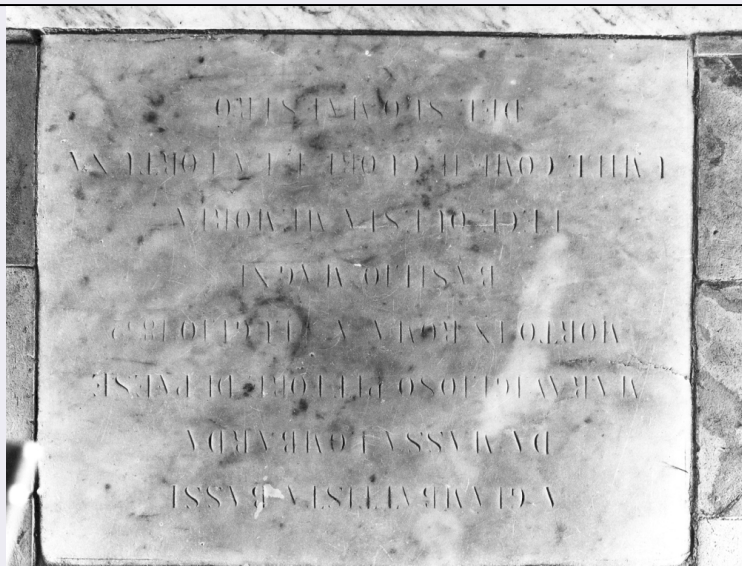 A GIAMBATTISTA BASSI
DA MASSALOMBARDA
MARAVIGLIOSO PITTORE DI PAESE
MORTO IN ROMA A LUGLIO 1852
BASILIO MAGNI
FECE QUESTA MEMORIA
UMILE COME IL CUORE E LA FORTUNA
DEL SUO MAESTRO